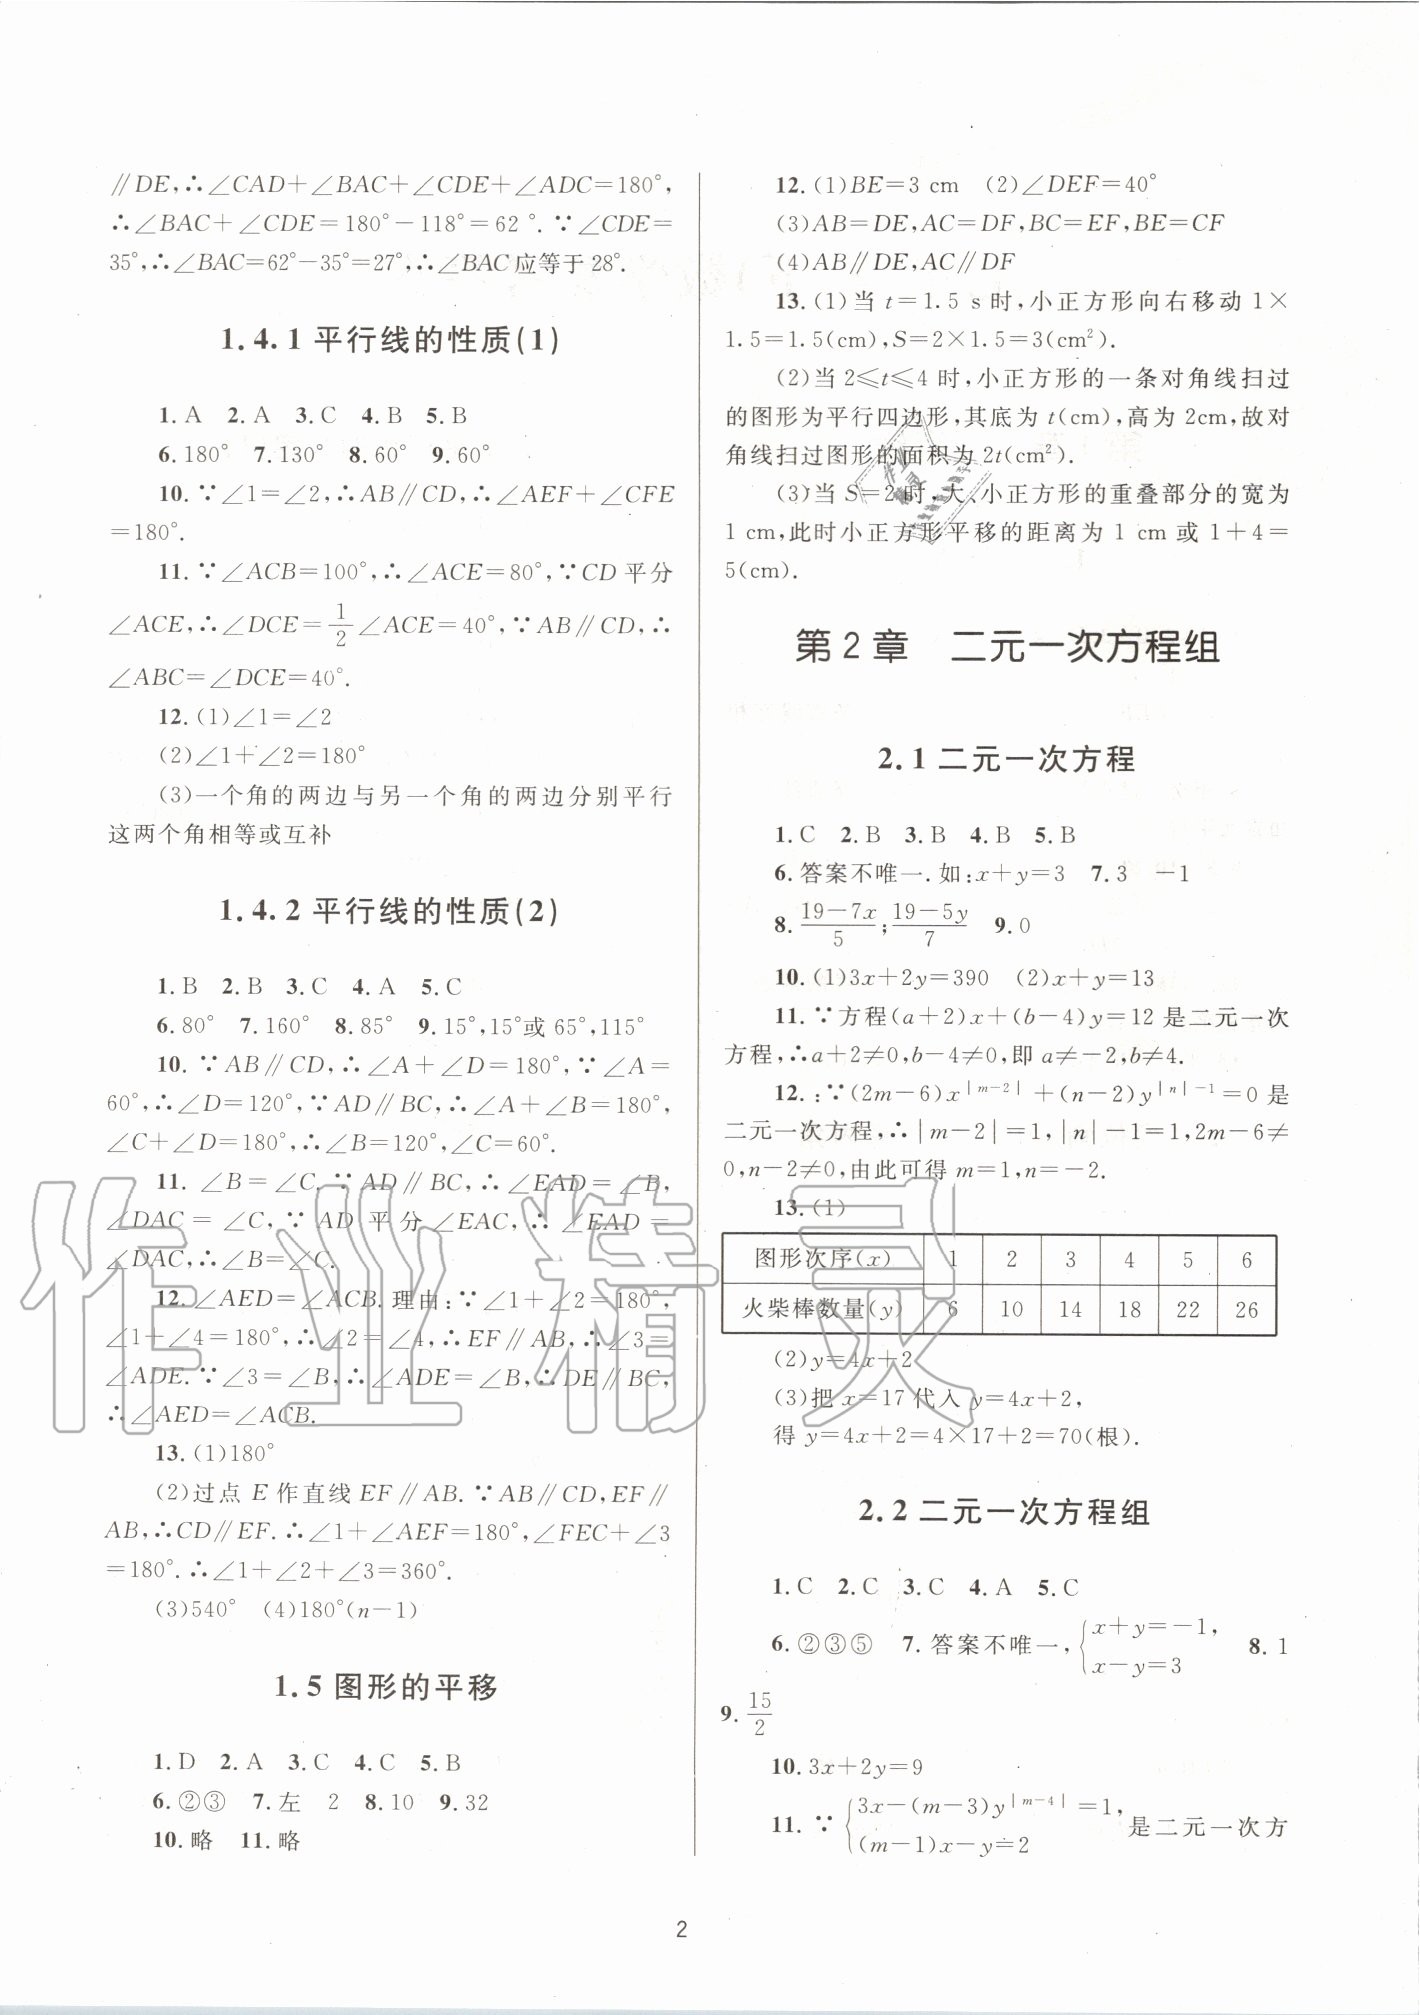 ∥DE,∴∠CAD+∠BAC+∠CDE+∠ADC=180°,
∴∠BAC+∠CDE=180°-118°=62°.∵∠CDE=
35°,∴∠BAC=62°-35°=27°,∴∠BAC应等于28°.
1.4.1 平行线的性质(1)
1.A 2.A 3.C 4.B 5.B
6.180° 7.130° 8.60° 9.60°
10.∵∠1=∠2,∴AB∥CD,∴∠AEF+∠CFE
=180°.
11.∵∠ACB=100°,∴∠ACE=80°,∵CD平分
∠ACE,∴∠DCE=1/2∠ACE=40°,∵AB∥CD,∴
∠ABC=∠DCE=40°.
12.(1)∠1=∠2
(2)∠1+∠2=180°
(3)一个角的两边与另一个角的两边分别平行
这两个角相等或互补
1.4.2 平行线的性质(2)
1.B 2.B 3.C 4.A 5.C
6.80° 7.160° 8.85° 9.15°,15°或65°,115°
10.∵AB∥CD,∴∠A+∠D=180°,∵∠A=
60°,∴∠D=120°,∵AD∥BC,∴∠A+∠B=180°,
∠C+∠D=180°,∴∠B=120°,∠C=60°.
11.∠B=∠C.∵AD∥BC,∴∠EAD=∠B,
∠DAC=∠C,∵AD平分∠EAC,∴∠EAD=
∠DAC,∴∠B=∠C.
12.∠AED=∠ACB.理由:∵∠1+∠2=180°,
∠1+∠4=180°,∴∠2=∠4,∴EF∥AB,∴∠3=
∠ADE.∵∠3=∠B,∴∠ADE=∠B,∴DE∥BC,
∴∠AED=∠ACB.
13.(1)180°
(2)过点E作直线EF∥AB.∵AB∥CD,EF∥
AB,∴CD∥EF.∴∠1+∠AEF=180°,∠FEC+∠3
=180°.∴∠1+∠2+∠3=360°.
(3)540° (4)180°(n-1)
1.5 图形的平移
1.D 2.A 3.C 4.C 5.B
6.②③ 7.左 2 8.10 9.32
10.略 11.略
12.(1)BE=3 cm (2)∠DEF=40°
(3)AB=DE,AC=DF,BC=EF,BE=CF
(4)AB∥DE,AC∥DF
13.(1)当t=1.5 s时,小正方形向右移动1×
1.5=1.5(cm),S=2×1.5=3(cm²).
(2)当2≤t≤4时,小正方形的一条对角线扫过
的图形为平行四边形,其底为t(cm),高为2cm,故对
角线扫过图形的面积为2t(cm²).
(3)当S=2时,大、小正方形的重叠部分的宽为
1 cm,此时小正方形平移的距离为1 cm或1+4=
5(cm).
第2章 二元一次方程组
2.1 二元一次方程
1.C 2.B 3.B 4.B 5.B
6.答案不唯一.如:x+y=3 7.3 -1
8.(19-7x)/5;(19-5y)/7 9.0
10.(1)3x+2y=390 (2)x+y=13
11.∵方程(a+2)x+(b-4)y=12是二元一次
方程,∴a+2≠0,b-4≠0,即a≠-2,b≠4.
12.:∵(2m-6)x^|m-2|+(n-2)y^|n|-1=0是
二元一次方程,∴|m-2|=1,|n|-1=1,2m-6≠
0,n-2≠0,由此可得m=1,n=-2.
13.(1)
图形次序(x) 1 2 3 4 5 6
火柴棒数量(y) 6 10 14 18 22 26
(2)y=4x+2
(3)把x=17代入y=4x+2,
得y=4x+2=4×17+2=70(根).
2.2 二元一次方程组
1.C 2.C 3.C 4.A 5.C
6.②③⑤ 7.答案不唯一,{x+y=-1, x-y=3 8.1
9.15/2
10.3x+2y=9
11.∵{3x-(m-3)y^|m-4|=1, (m-1)x-y=2 是二元一次方
2
作业精灵